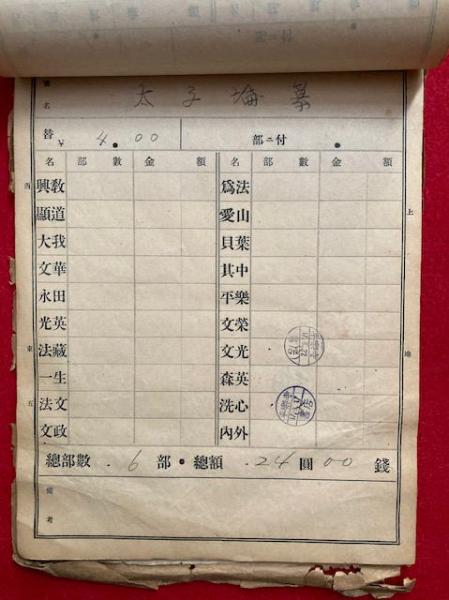 付ニ部
名
太子 墓
替 ¥ 4.00 部ニ付
名 部 數 金 額 名 部 數 金 額
興教 爲法
顯道 愛山
大我 貝葉
文華 其中
永田 平樂
光英 文榮
法藏 文光
一生 森英
法文 洗心
文政 內外
西
東
五
上
總部數 6 部 總額 24 圓 00 錢
備考